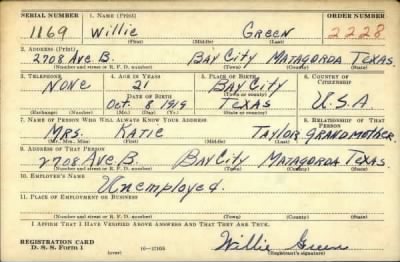 SERIAL NUMBER 1. NAME (Print) ORDER NUMBER
1169 Willie GREEN 2228
(First) (Middle) (Last)
2. ADDRESS (Print)
2708 AVE B. BAY CITY MATAGORDA TEXAS
(Number and street or R. F. D. number) (Town) (County) (State)
3. TELEPHONE 4. AGE IN YEARS 5. PLACE OF BIRTH 6. COUNTRY OF CITIZENSHIP
NONE 21 BAY CITY
DATE OF BIRTH (Town or county)
OCT. 8 1919 TEXAS U.S.A
(Exchange) (Number) (Mo.) (Day) (Yr.) (State or country)
7. NAME OF PERSON WHO WILL ALWAYS KNOW YOUR ADDRESS 8. RELATIONSHIP OF THAT PERSON
MRS. KATIE TAYLOR GRANDMOTHER.
(Mr., Mrs., Miss) (First) (Middle) (Last)
9. ADDRESS OF THAT PERSON
2708 AVE. B. BAY CITY MATAGORDA TEXAS
(Number and street or R. F. D. number) (Town) (County) (State)
10. EMPLOYER'S NAME
Unemployed.
11. PLACE OF EMPLOYMENT OR BUSINESS
(Number and street or R. F. D. number) (Town) (County) (State)
I AFFIRM THAT I HAVE VERIFIED ABOVE ANSWERS AND THAT THEY ARE TRUE.
REGISTRATION CARD
D. S. S. Form 1 (over) Willie Green
(Registrant's signature)